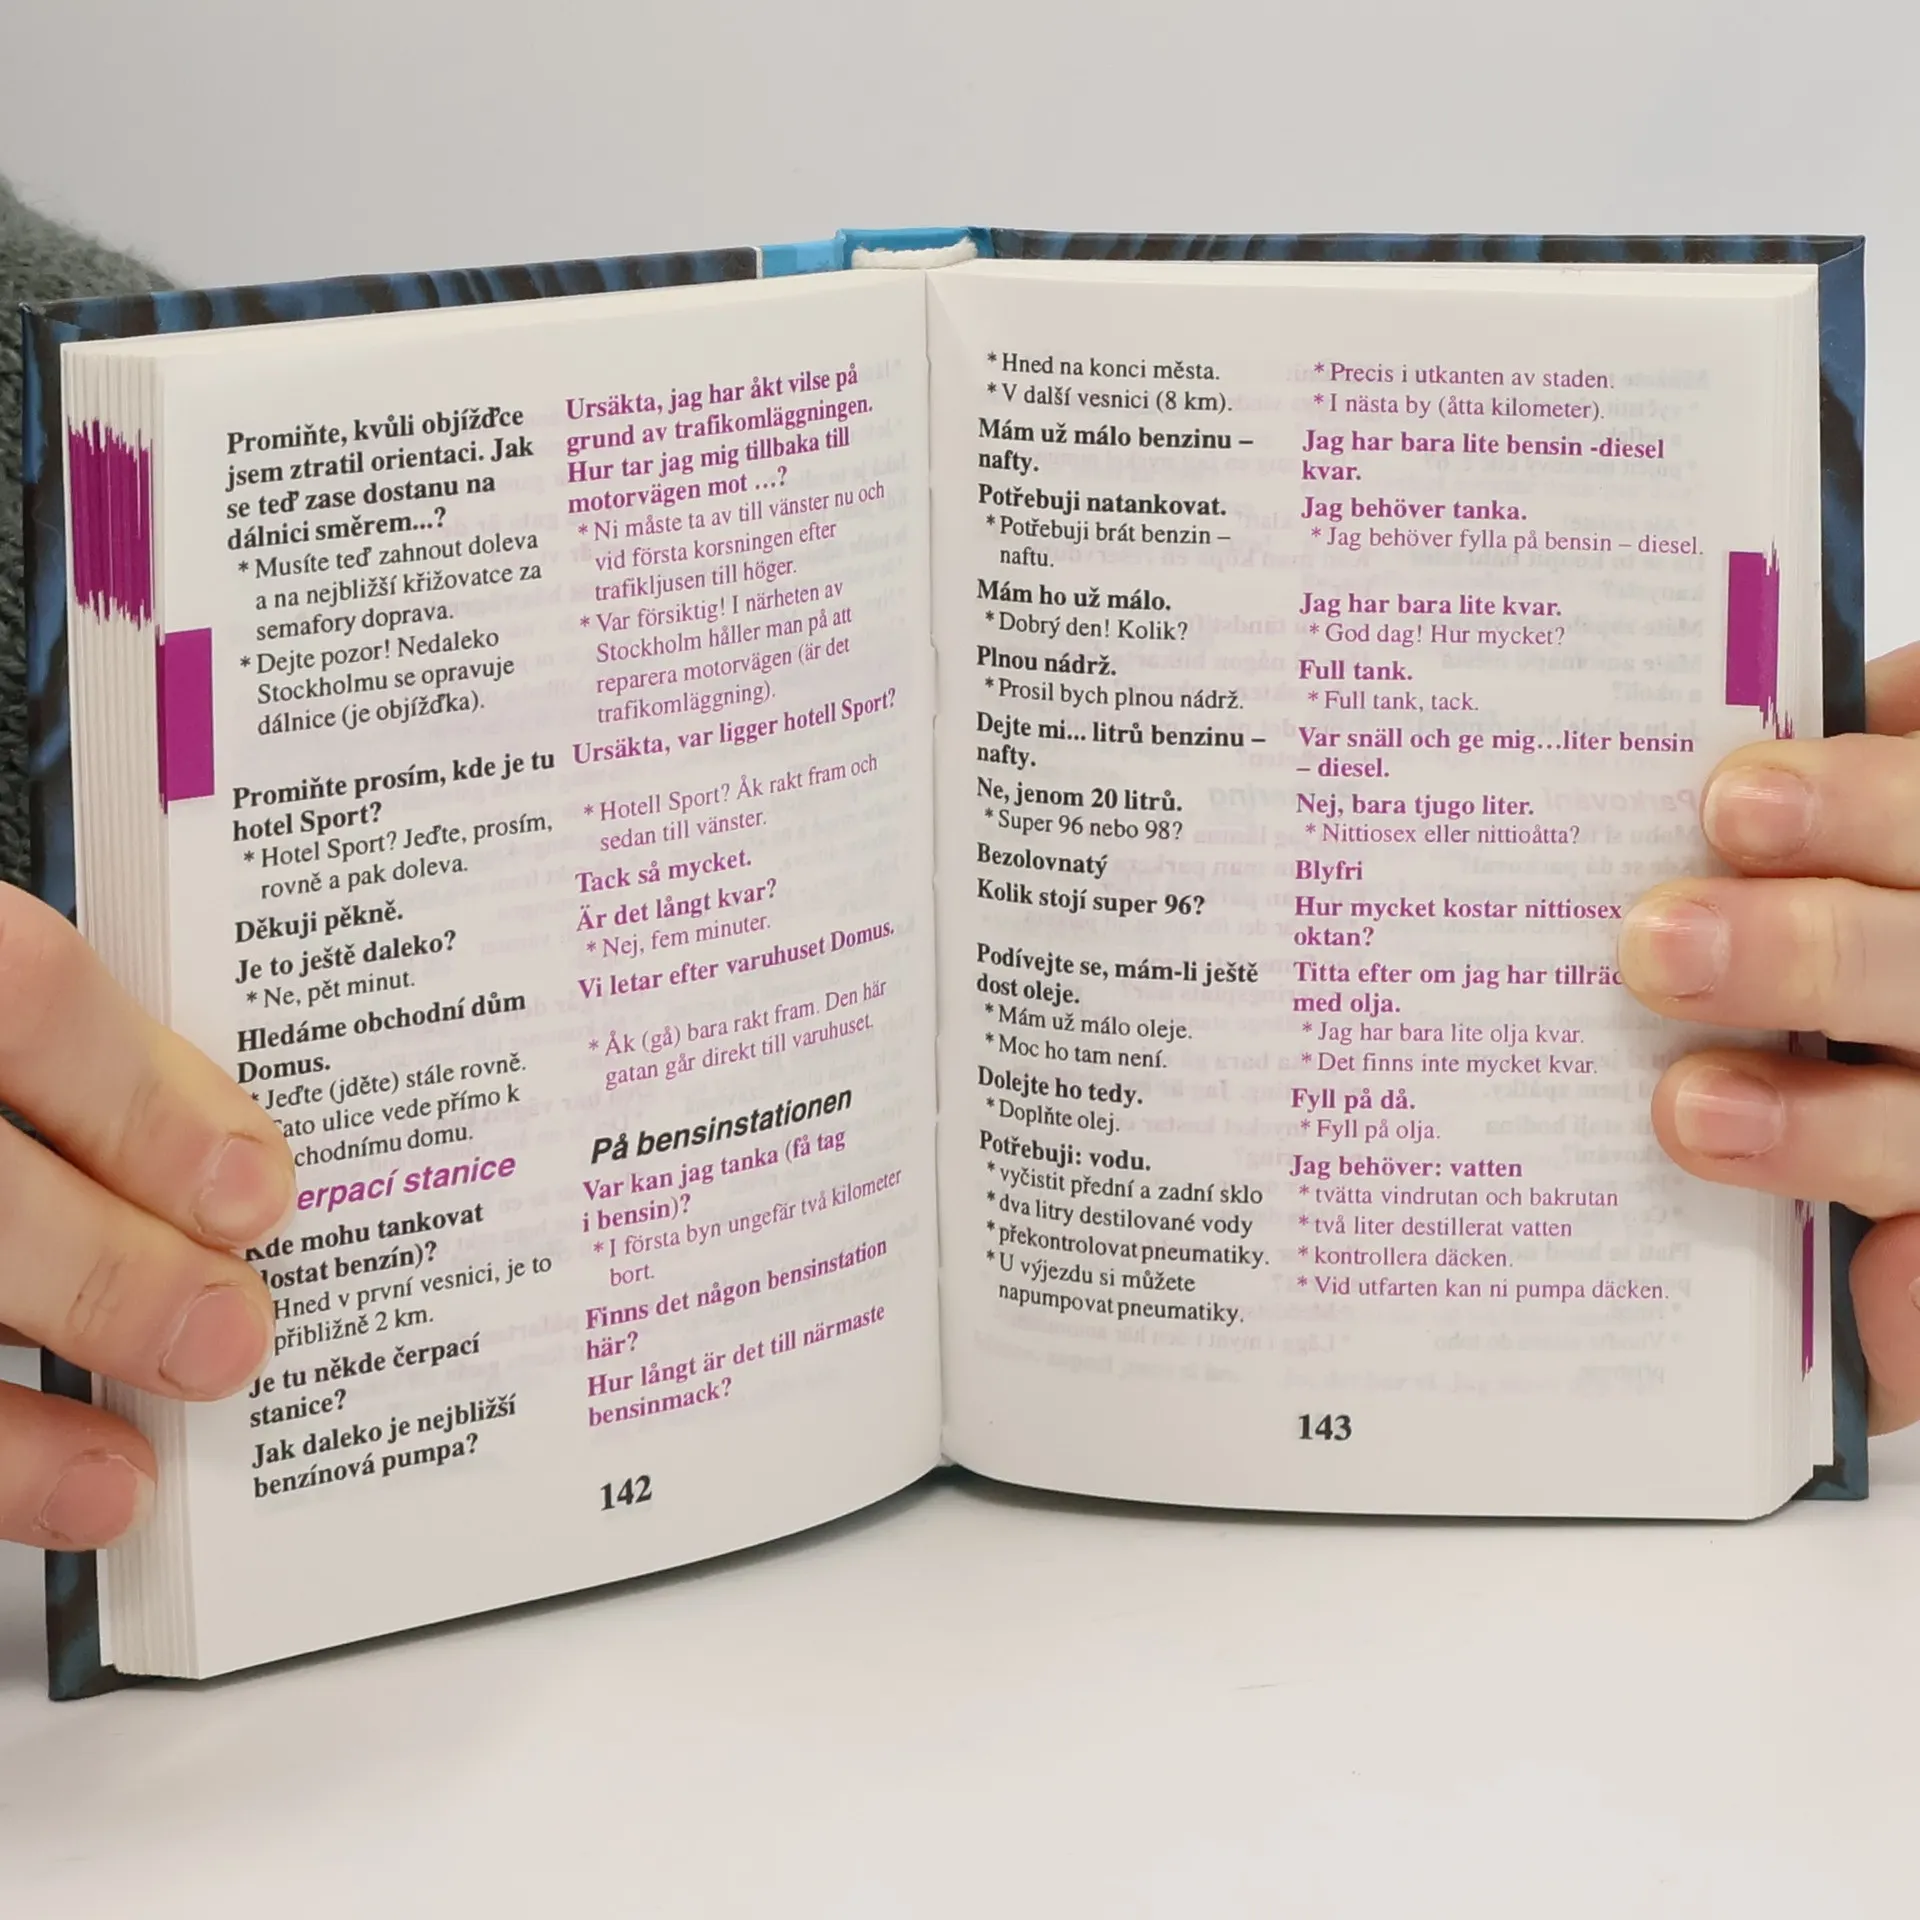 Promiňte, kvůli objížďce
jsem ztratil orientaci. Jak
se teď zase dostanu na
dálnici směrem...?
* Musíte teď zahnout doleva
a na nejbližší křižovatce za
semafory doprava.
* Dejte pozor! Nedaleko
Stockholmu se opravuje
dálnice (je objížďka).
Promiňte prosím, kde je tu
hotel Sport?
* Hotel Sport? Jeďte, prosím,
rovně a pak doleva.
Děkuji pěkně.
Je to ještě daleko?
* Ne, pět minut.
Hledáme obchodní dům
Domus.
* Jeďte (jděte) stále rovně.
ulice vede přímo k
domu.
stanice
mohu tankovat
benzín)?
Hned v první vesnici, je to
přibližně 2 km.
Je tu někde čerpací
stanice?
Jak daleko je nejbližší
benzínová pumpa?
Ursäkta, jag har åkt vilse på
grund av trafikomläggningen.
Hur tar jag mig tillbaka till
motorvägen mot ...?
* Ni måste ta av till vänster nu och
vid första korsningen efter
trafikljusen till höger.
* Var försiktig! I närheten av
Stockholm håller man på att
reparera motorvägen (är det
trafikomläggning).
Ursäkta, var ligger hotell Sport?
* Hotell Sport? Åk rakt fram och
sedan till vänster.
Tack så mycket.
Är det långt kvar?
* Nej, fem minuter.
Vi letar efter varuhuset Domus.
* Åk (gå) bara rakt fram. Den här
gatan går direkt till varuhuset.
På bensinstationen
Var kan jag tanka (få tag
i bensin)?
* I första byn ungefär två kilometer
bort.
Finns det någon bensinstation
här?
Hur långt är det till närmaste
bensinmack?
142
* Hned na konci města.
* V další vesnici (8 km).
Mám už málo benzinu –
nafty.
Potřebuji natankovat.
* Potřebuji brát benzin –
naftu.
Mám ho už málo.
* Dobrý den! Kolik?
Plnou nádrž.
* Prosil bych plnou nádrž.
Dejte mi... litrů benzinu –
nafty.
Ne, jenom 20 litrů.
* Super 96 nebo 98?
Bezolovnatý
Kolik stojí super 96?
Podívejte se, mám-li ještě
dost oleje.
* Mám už málo oleje.
* Moc ho tam není.
Dolejte ho tedy.
* Doplňte olej.
Potřebuji: vodu.
* vyčistit přední a zadní sklo
* dva litry destilované vody
* překontrolovat pneumatiky.
* U výjezdu si můžete
napumpovat pneumatiky.
* Precis i utkanten av staden.
* I nästa by (åtta kilometer).
Jag har bara lite bensin -diesel
kvar.
Jag behöver tanka.
* Jag behöver fylla på bensin – diesel.
Jag har bara lite kvar.
* God dag! Hur mycket?
Full tank.
* Full tank, tack.
Var snäll och ge mig...liter bensin
– diesel.
Nej, bara tjugo liter.
* Nittiosex eller nittioåtta?
Blyfri
Hur mycket kostar nittiosex
oktan?
Titta efter om jag har
med olja.
* Jag har bara lite olja kvar.
* Det finns inte mycket kvar.
Fyll på då.
* Fyll på olja.
Jag behöver: vatten
* tvätta vindrutan och bakrutan
* två liter destillerat vatten
* kontrollera däcken.
* Vid utfarten kan ni pumpa däcken.
143